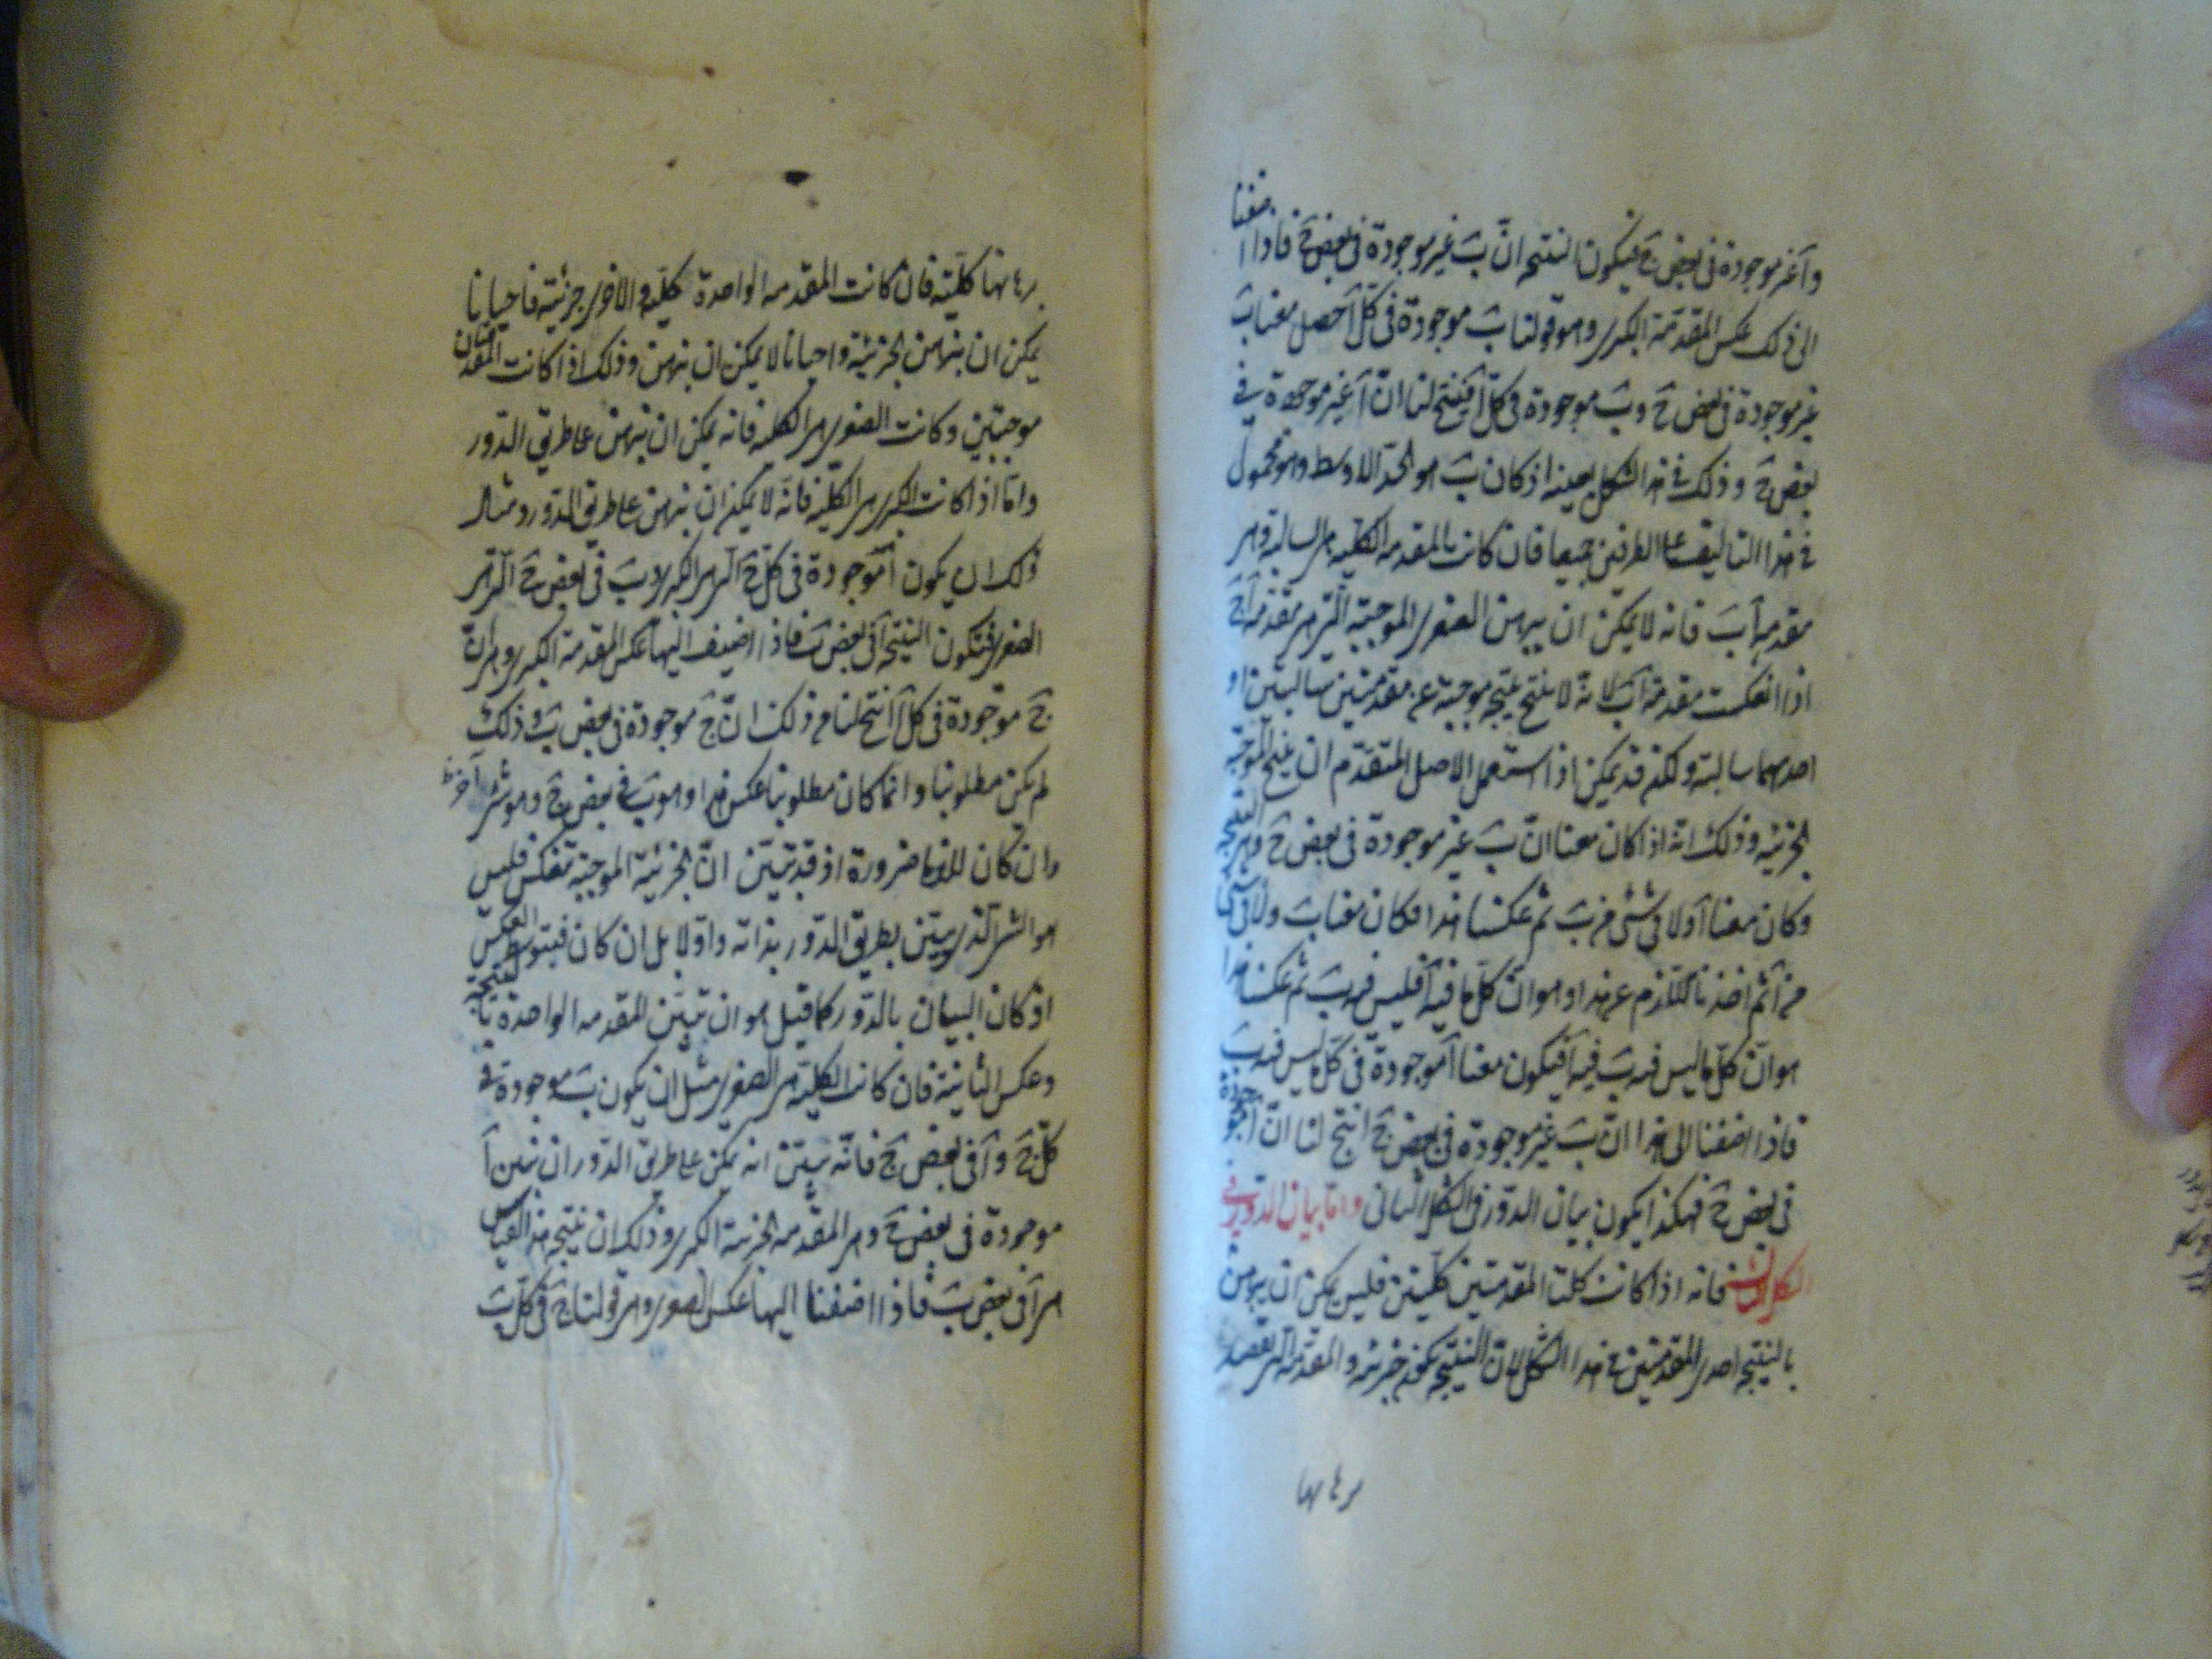 وآ غير موجودة فى بعض جَ فيكون النتيجه انّ بَ غير موجودة فى بعض جَ فاذا اضفنا
الى ذلك عكس المقدّمة الكبرى وهو قولنا بَ موجودة فى كلّ آ حصل معنا بَ
غير موجودة فى بعض جَ وبَ موجودة فى كلّ آ فينتج لنا انّ آ غير موجودة فى
بعض جَ وذلك فى هذا الشكل بعينه اذ كان بَ هو الحدّ الاوسط وهو محمول
فى هذا التاليف على الطرفين جميعا فان كانت المقدمه الكليه هى السالبة وهى
مقدمه آبَ فانه لا يمكن ان يبرهن الصغرى الموجبة الّتى هى مقدّمه آجَ
اذا انعكست مقدمة آبَ لانّه لا ينتج نتيجه موجبة عن مقدمتين سالبتين او
احدىهما سالبة ولكنه قد يمكن اذا استعمل الاصل المتقدّم ان ينتج الموجبة
الجزئيّه وذلك انّه اذا كان معنا انّ بَ غير موجودة فى بعض جَ وهى النتيجة
وكان معنا آ ولا فى شئ من بَ ثم عكسنا هذا فكان معنا بَ ولا فى شئ
من آ ثم اخذنا اللازم عن هذا وهو انّ كلّ ما فيه آ فليس فيه بَ ثم عكسنا هذا
هو انّ كلّ ما ليس فيه بَ فيه آ فيكون معنا آ موجودة فى كلّ ما ليس فيه بَ
فاذا اضفنا الى هذا انّ بَ غير موجودة فى بعض جَ انتج لنا انّ آ موجودة
فى بعض جَ فهكذا يكون بيان الدّور فى الشكل الثانى وامّا بيان الدّور فى
الشكل الثالث فانه اذا كانت كلتا المقدمتين كلّيتين فليس يمكن ان يبرهن
بالنتيجه احدى المقدّمتين فى هذا الشكل لانّ النتيجه تكون جزئيه والمقدّمه الّتى نقصد
برهانها
برهانها كلّيّة فان كانت المقدمه الواحدة كليّة والاخرى جزئيّة فاحيانا
يمكن ان يبرهن الجزئيّة واحيانا لا يمكن ان يبرهن وذلك اذا كانت المقدّمتان
موجبتين وكانت الصغرى هى الكليه فانه يمكن ان يبرهن على طريق الدّور
وامّا اذا كانت الكبرى هى الكليّة فانّه لا يمكن ان يبرهن على طريق الدّور ومثال
ذلك ان يكون آ موجودة فى كلّ جَ الّتى هى الكبرى وبَ فى بعض جَ الّتى هى
الصغرى فتكون النتيجه آ فى بعض بَ فاذا اضيف اليها عكس المقدّمة الكبرى وهى انّ
جَ موجودة فى كلّ آ انتج لنا من ذلك انّ جَ موجودة فى بعض بَ وذلك
لم يكن مطلوبنا وانما كان مطلوبنا عكس هذا وهو بَ فى بعض جَ وهو شئ آخر
وان كان لازما ضرورة اذ قد تبيّن انّ الجزئية الموجبة تنعكس فليس
هو الشئ الّذى يبيّن بطريق الدّور بذاته واوّلا بل ان كان فبتوسّط العكس
اذ كان البيان بالدّور كما قيل هو ان تبيّن المقدمه الواحدة بالنتيجة
وعكس الثانية فان كانت الكليّة هى الصغرى مثل ان يكون بَ موجودة فى
كلّ جَ وآ فى بعض جَ فانّه يبيّن انه يمكن على طريق الدّور ان نبين آ
موجودة فى بعض جَ وهى المقدّمه الجزئية الكبرى وذلك ان نتيجه هذا القياس
هى آ فى بعض بَ فاذا اضفنا اليها عكس الصغرى وهو قولنا جَ فى كلّ بَ